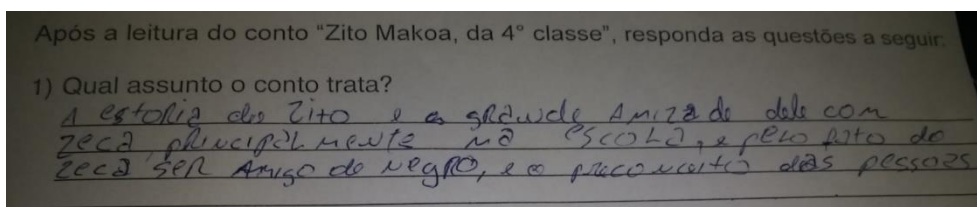 Após a leitura do conto "Zito Makoa, da 4° classe", responda as questões a seguir.
1) Qual assunto o conto trata?
A estoria do Zito e a grande Amizade dele com
Zeca, principalmente na escola, e pelo fato do
Zeca ser Amigo de negro, e o preconceito das pessoas